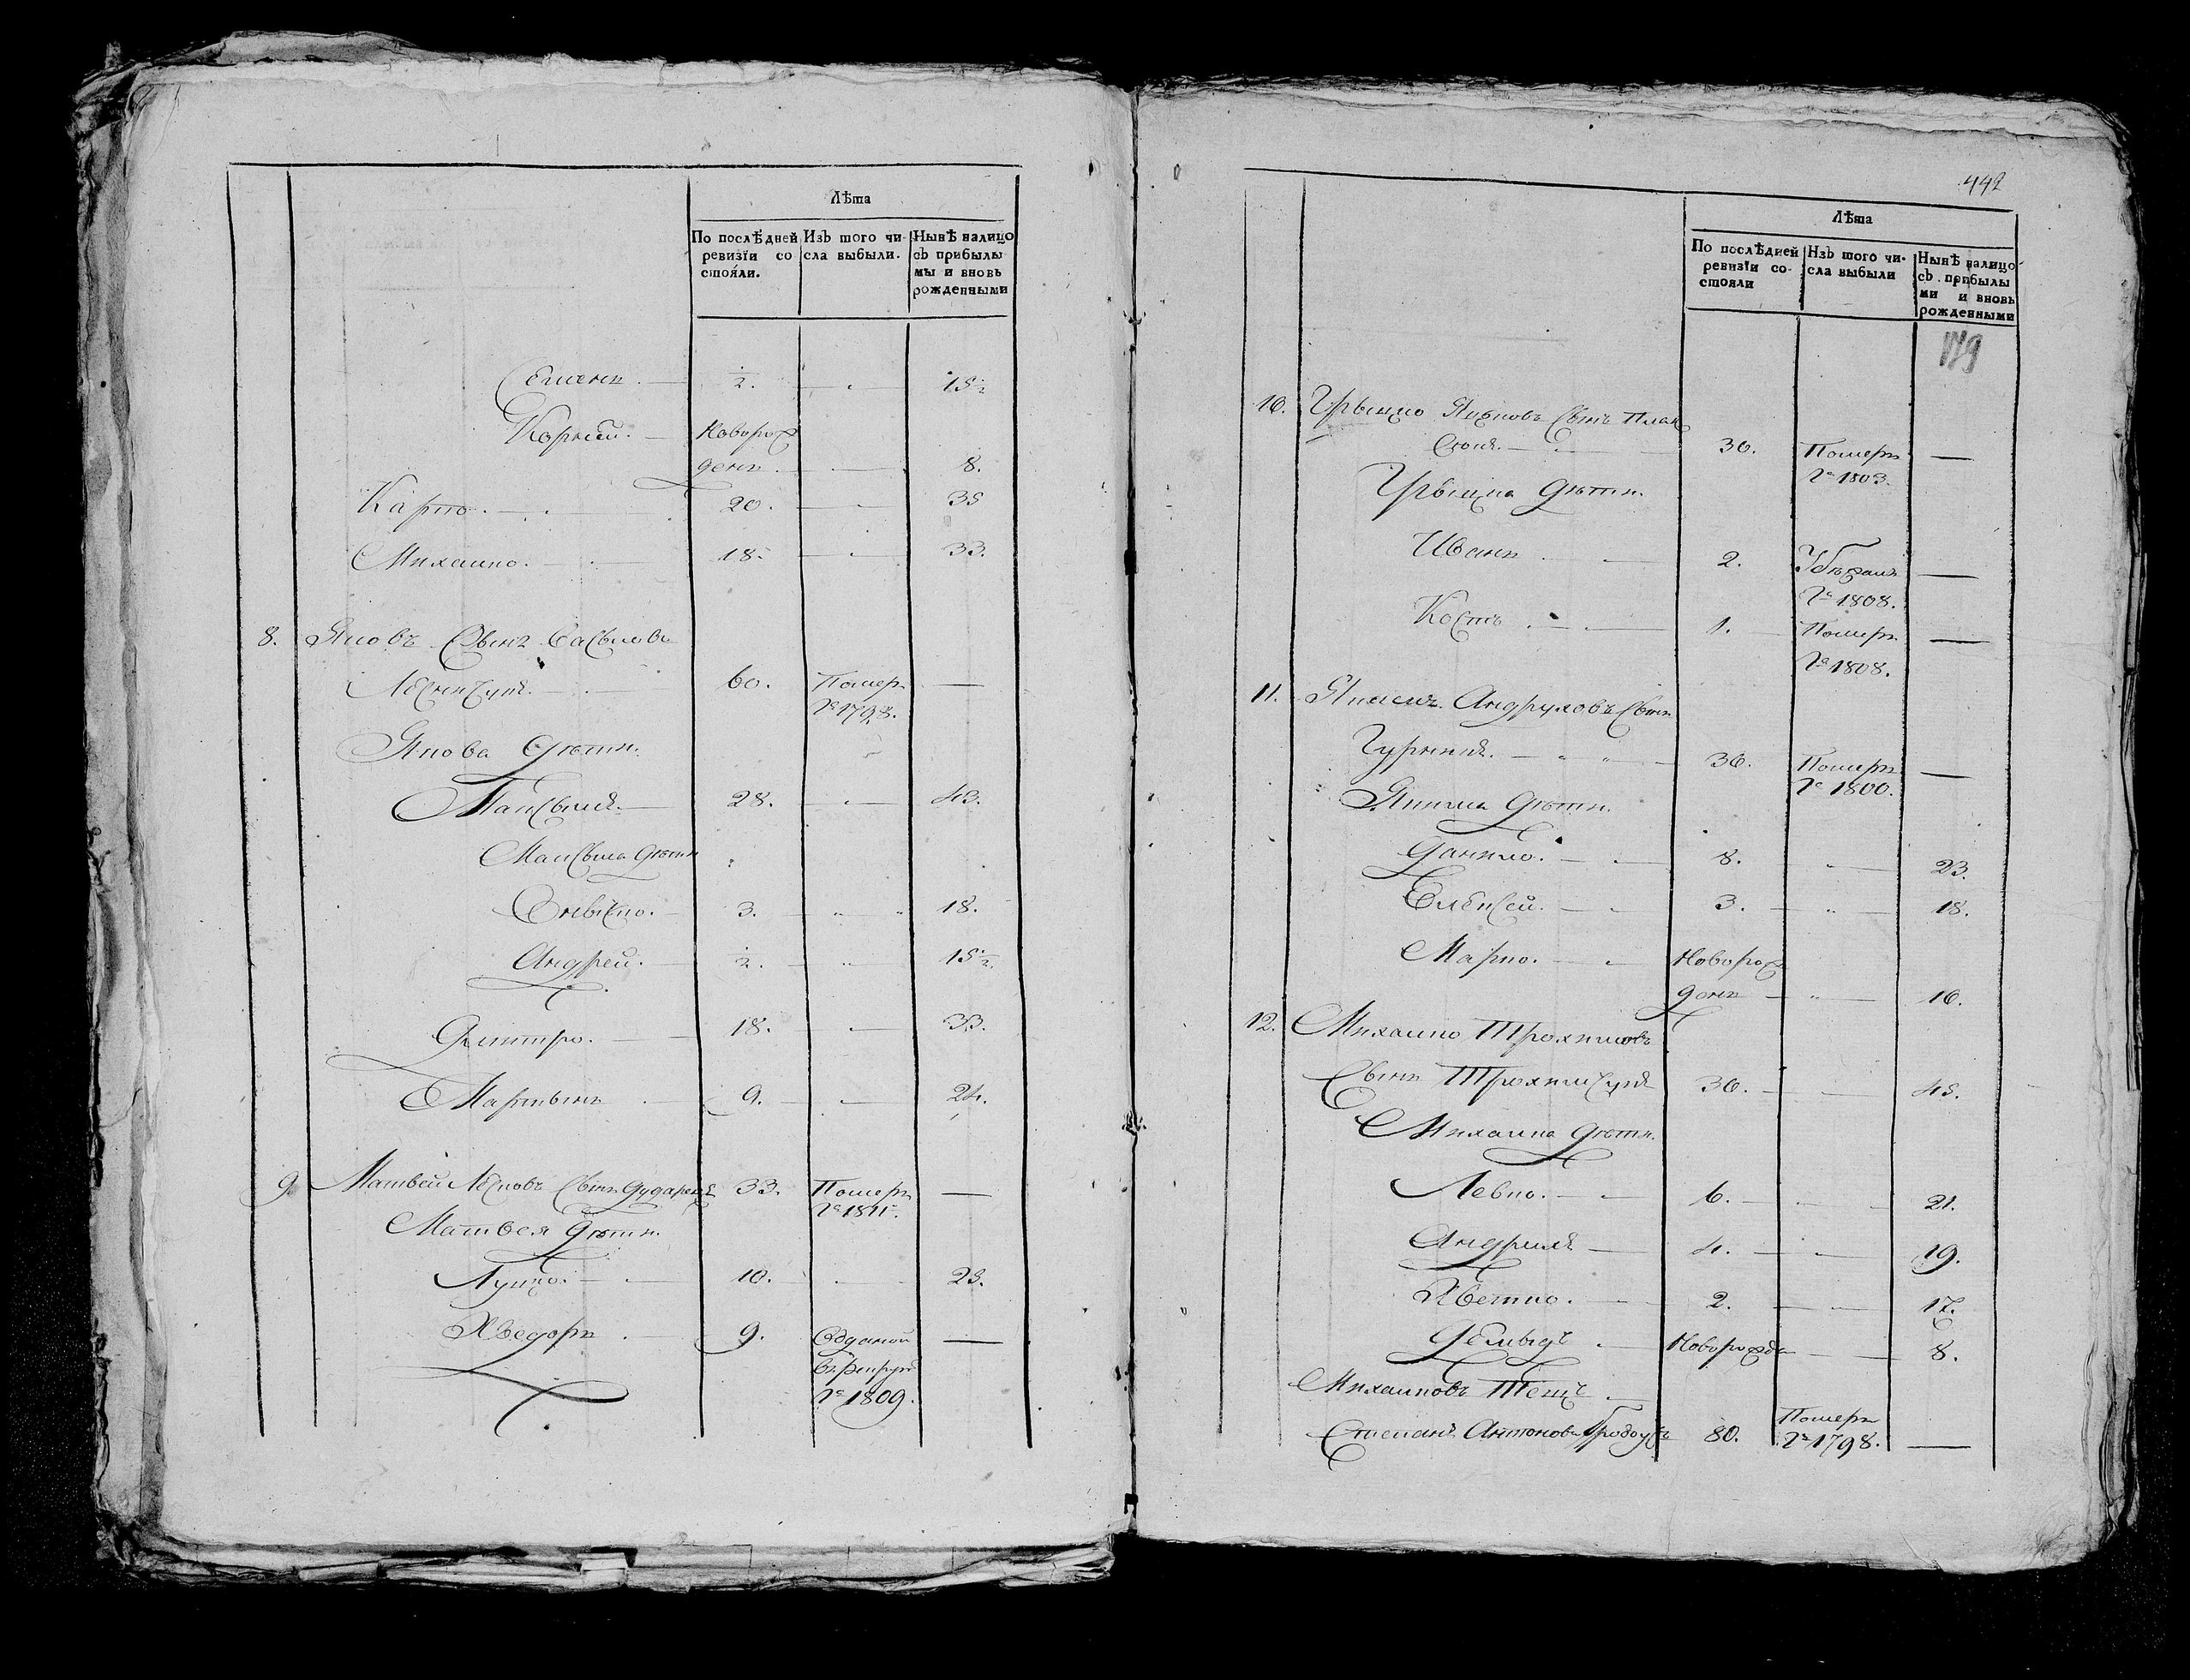 Лѣта
По послѣдней ревизїи со стояли. Изъ того чи- сла выбыли. Нынѣ налицо съ прибылы ми и вновь рожденными
Семенъ. ½. 15½
Корнѣй. Новорож
денъ. 8.
Карпо. 20. 35
Михайло. 18. 33.
8. Яковъ Сынъ Васылевъ
60. Померъ
1798.
Якова дѣти.
Максымъ. 28. 43.
Максыма дѣти
3. 18.
Андрей. ½. 15½.
Дмитро. 18. 33.
Мартынъ 9. 24.
9. Матвей Лѣсковъ Сынъ 33. Померъ
1811.
Матвея дѣти.
Луцко. 10. 25.
Хведоръ. 9. Отданой
въ рекруты
1809.
442
Лѣта
По послѣдней ревизїи со- стояли Изъ того чи- сла выбыли Нынѣ налицо съ прибылы ми и вновь рожденными
10. Грыцко Яцковъ Сынъ
30. Померъ
1803.
Грыцка дѣти.
Иванъ 2. Убѣжалъ
1808.
Кость 1. Померъ
1808.
11. Якимъ Андруховъ Сынъ
36. Померъ
1800.
Якима дѣти.
Данило. 8. 23.
Елексей. 3. 18.
Марко. Новорож
денъ 16.
12. Михайло Трохимовъ
Сынъ 30. 45.
Михайла дѣти.
Левко. 6. 21.
4. 19.
Хветко. 2. 17.
Демыдъ Новорожде 8.
Михайловъ Тещъ
Степанъ Антоновъ 80. Померъ
1798.